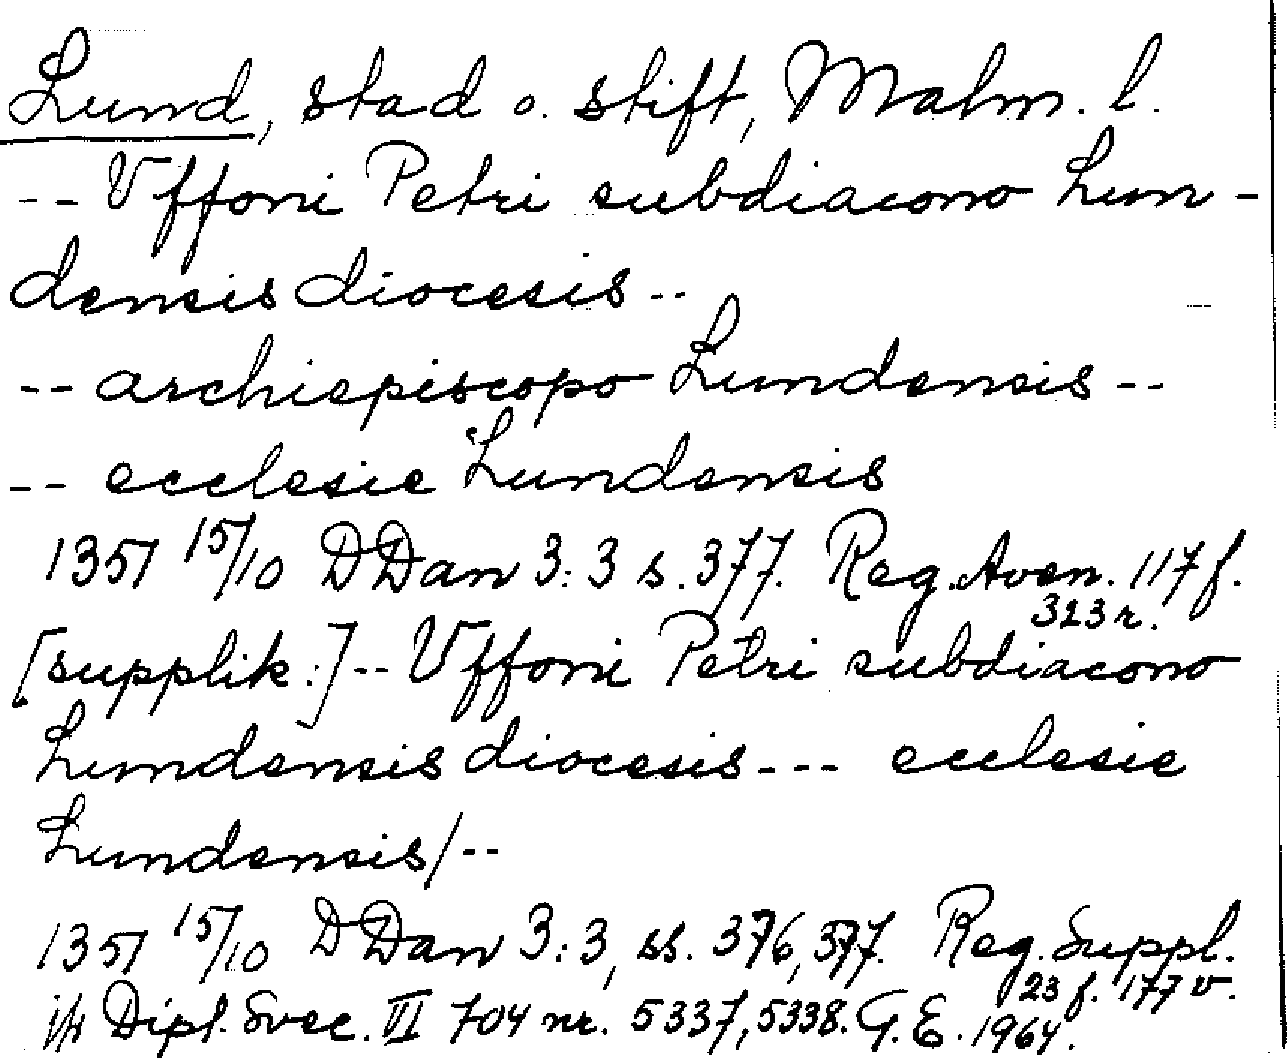 Lund, stad o. stift, Malm. l.
-- Uffoni Petri subdiacono Lun-
densis diocesis --
-- archiepiscopo Lundensis --
-- ecclesie Lundensis
1351 15/10 DDan 3:3 s. 377. Reg. Aven. 117 f.
323 r.
[supplik:] -- Uffoni Petri subdiacono
Lundensis diocesis --- ecclesie
Lundensis/--
1351 15/10 DDan 3:3, ss. 376, 377. Reg. Suppl.
23 f. 177 v.
Dipl. Svec. VI 704 nr. 5337, 5338. G. E. 1964.